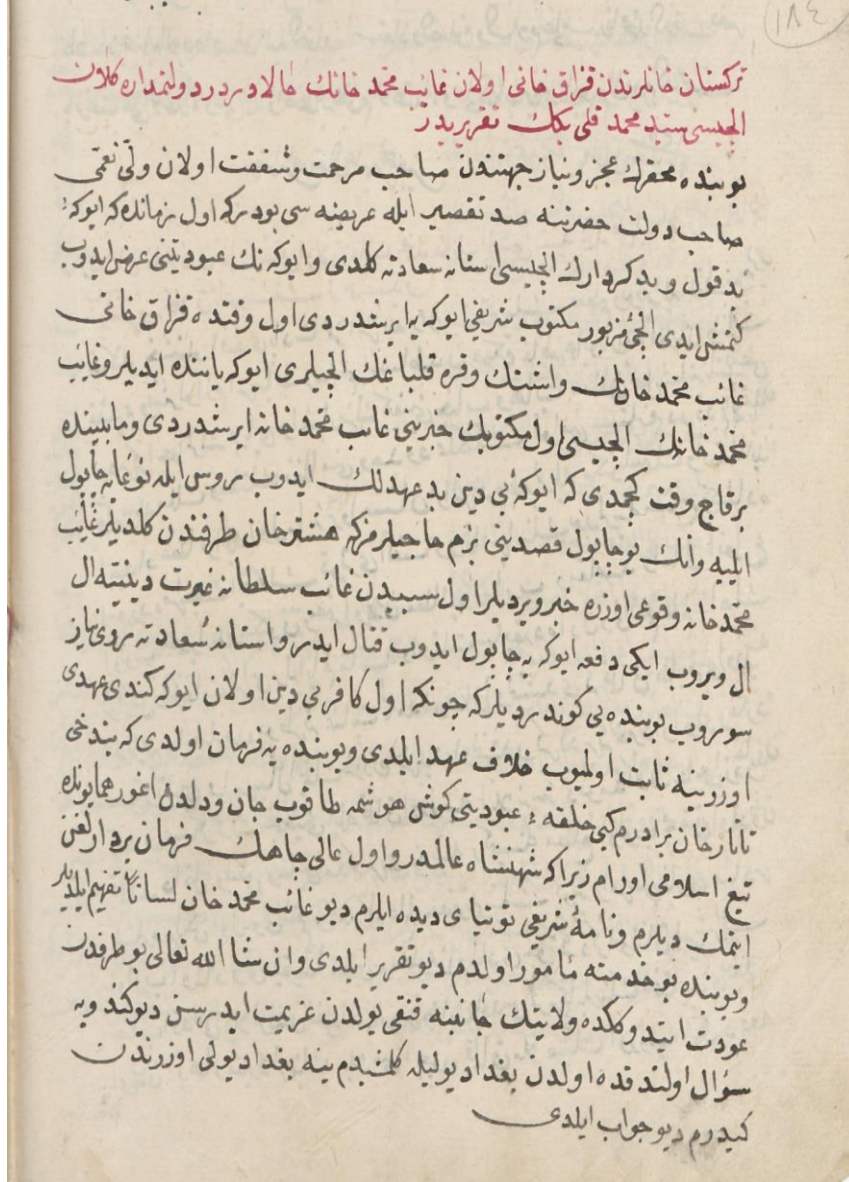 ١٨٤
تركستان خانلرندن قزاق خانی اولان غائب محمد خانك حالا در دولتمداره كلان
ایلچیسی سید محمد قلی بكك تقریریدر
بو بنده محقرك عجز و نیاز جهتندن صاحب مرحمت و شفقت اولان ولی نعمی
صاحب دولت حضرتنه صد تقصیر ایله عریضه سی بودركه اول زمانده كه ایوكهٔ
بد قول و بد كردارك ایلچیسی استانه سعادته كلدی و ایوكه نك عبودیتنی عرض ایدوب
كتمش ایدی ایلچیٔ مزبور مكتوب شریفی ایوكه یه ایرشدردی اول وقتده قزاق خانی
غائب محمد خانك واشتك وقره قلپاغك ایلچیلری ایوكه یاننده ایدیلر وغائب
محمد خانك ایلچیسی اول مكتوبك خبرینی غائب محمد خانه ایرشدردی ومابینده
برقاچ وقت كچمدی كه ایوكهٔ بی دین بد عهدلك ایدوب روس ایله نوغایه چاپول
ایلیه وانك بو چاپول قصدینی بزم حاجیلرمزكه هشترخان طرفندن كلدیلر غائب
محمد خانه وقوعی اوزره خبر ویردیلر اول سببدن غائب سلطانه غیرت دینیه ال
ال ویروب ایكی دفعه ایوكه یه چاپول ایدوب قتال ایدر واستانهٔ سعادته روی نیاز
سوروب بوبنده یی كوندردیلركه چونكه اول كافر بی دین اولان ایوكه كندی عهدی
اوزرینه ثابت اولمیوب خلاف عهد ایلدی وبوبنده یه فرمان اولدی كه بندخی
تاتارخان برادرم كبی حلقهٔ عبودیتی كوش هوشمه طاقوب جان ودلدن اغور همایونده
تیغ اسلامی اورام زیراكه شهنشاه عالمدر واول عالی جاهك فرمان بردارلغن
ایتمك دیلرم ونامهٔ شریفی توتیای دیده ایلرم دیو غائب محمد خان لساناً تفهیم ایلدیلر
وبوبنده بو خدمته مأمور اولدم دیو تقریر ایلدی وان شا الله تعالی بو طرفدن
عودت ایتدوككده ولایتك جانبنه قنقی یولدن عزیمت ایدرسن دیو كندویه
سؤال اولندقده اولدن بغداد یولیله كلمشیدم ینه بغداد یولی اوزرندن
كیدرم دیو جواب ایلدی